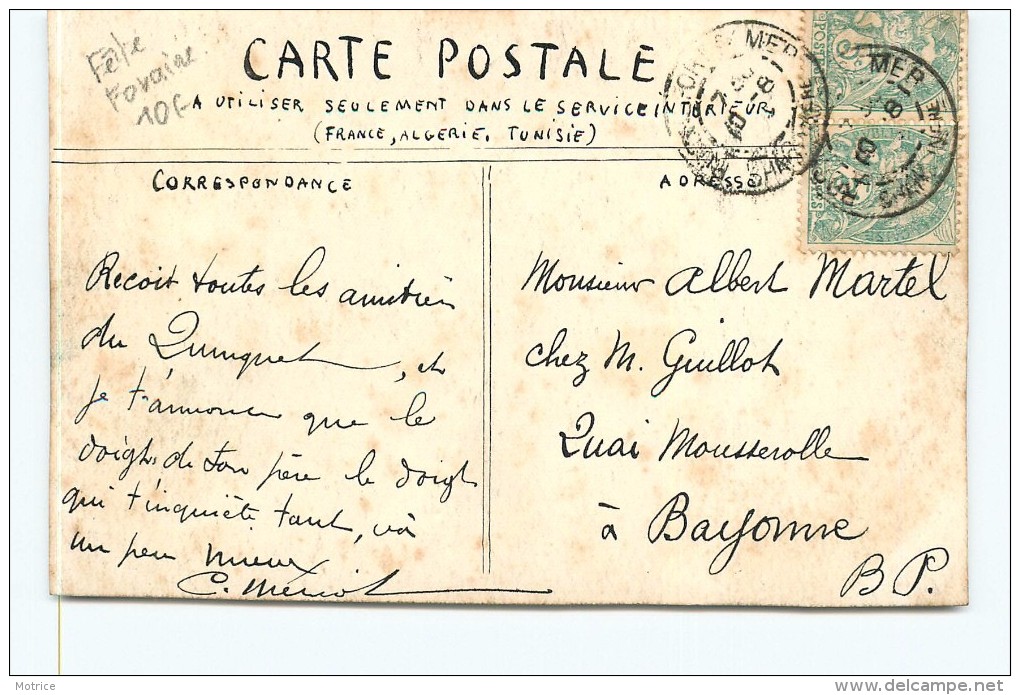 Fête
Foraine
10€
CARTE POSTALE
A UTILISER SEULEMENT DANS LE SERVICE INTÉRIEUR
(FRANCE, ALGERIE, TUNISIE)
CORRESPONDANCE
ADRESSE
Reçoit toutes les amitiés
du Quinquet, et
je t'annonce que le
doigt de ton père le doigt
qui t'inquiète tant, và
un peu mieux
C. Mériot
Monsieur Albert Martel
chez M. Guillot
Quai Mousserolle
à Bayonne
B P.
MER
MER
Motrice
http://www.delcampe.net